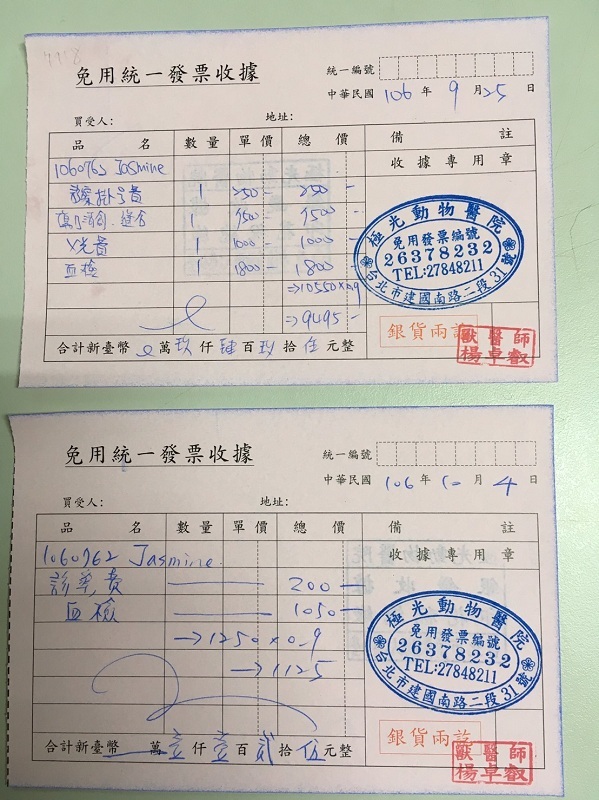 免用統一發票收據
統一編號
中華民國 106 年 9 月 25 日
買受人: 地址:
品 名 數量 單價 總價 備 註
1060762 Jasmine 收據專用章
掛号費 1 250- 250-
1 7500- 7500-
X光費 1 1000- 1000-
血檢 1 1800- 1800
⇒10550×0.9
⇒9495-
極光動物醫院
免用發票編號
26378232
TEL:27848211
台北市建國南路二段31號
銀貨兩訖
獸醫師
楊卓叡
合計新臺幣 萬 玖 仟 肆 百 玖 拾 伍 元整
免用統一發票收據
統一編號
中華民國 106 年 10 月 4 日
買受人: 地址:
品 名 數量 單價 總價 備 註
1060762 Jasmine 收據專用章
診察費 200
血檢 1050
→1250×0.9
→1125
極光動物醫院
免用發票編號
26378232
TEL:27848211
台北市建國南路二段31號
銀貨兩訖
獸醫師
楊卓叡
合計新臺幣 萬 壹 仟 壹 百 貳 拾 伍 元整